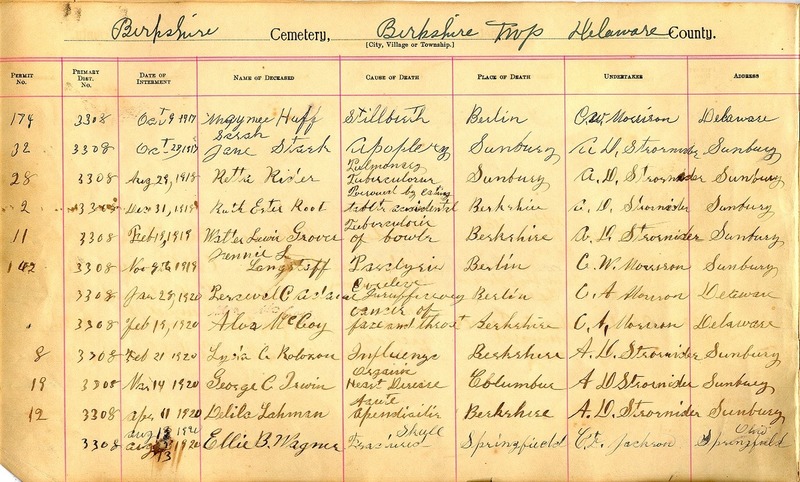 Berkshire Cemetery, Berkshire Twp Delaware County.
[City, Village or Township.]
PERMIT No. PRIMARY DIST. No. DATE OF INTERMENT NAME OF DECEASED CAUSE OF DEATH PLACE OF DEATH UNDERTAKER ADDRESS
174 3308 Oct 9 1917 Maynee Huff Stillbirth Berlin C.W. Morrison Delaware
Sarah
32 3308 Oct 28, 1917 Jane Stark Apoplexy Sunbury A.D. Strosnider Sunbury
Pulmonary
28 3308 Aug 29, 1918 Retta Rider Tuberculosis Sunbury A.D. Strosnider Sunbury
Poisoned by eating
2 3308 Dec 31, 1918 Ruth Ester Root accidental Berkshire A. D. Strosnider Sunbury
Tuberculosis
11 3308 Feb 19, 1919 Walter Lewis Groves of bowls Berkshire A. D. Strosnider Sunbury
Jennie L
142 3308 Nov 9th 1919 Longstaff Paralysis Berlin C. W. Morrison Sunbury
3308 Jan 28, 1920 Perceval C Berlin C A Morrison Delaware
cancer of
3308 Feb 19, 1920 Alva McCoy face and throat Berkshire C, A, Morrison Delaware
8 3308 Feb 21 1920 Lydia A Influenza Berkshire A. D. Strosnider Sunbury
Organic
19 3308 Mar 14 1920 George C. Irwin Heart Disease Columbus A D Strosnider Sunbury
Acute
12 3308 Apr 11 1920 Delila Lahman Apendisitis Berkshire A. D. Strosnider Sunbury
Aug 13 1920 Skull Ohio
3308 Aug 1920 Ellie B. Wagner Fractured Springfield C. E. Jackson Springfield
13